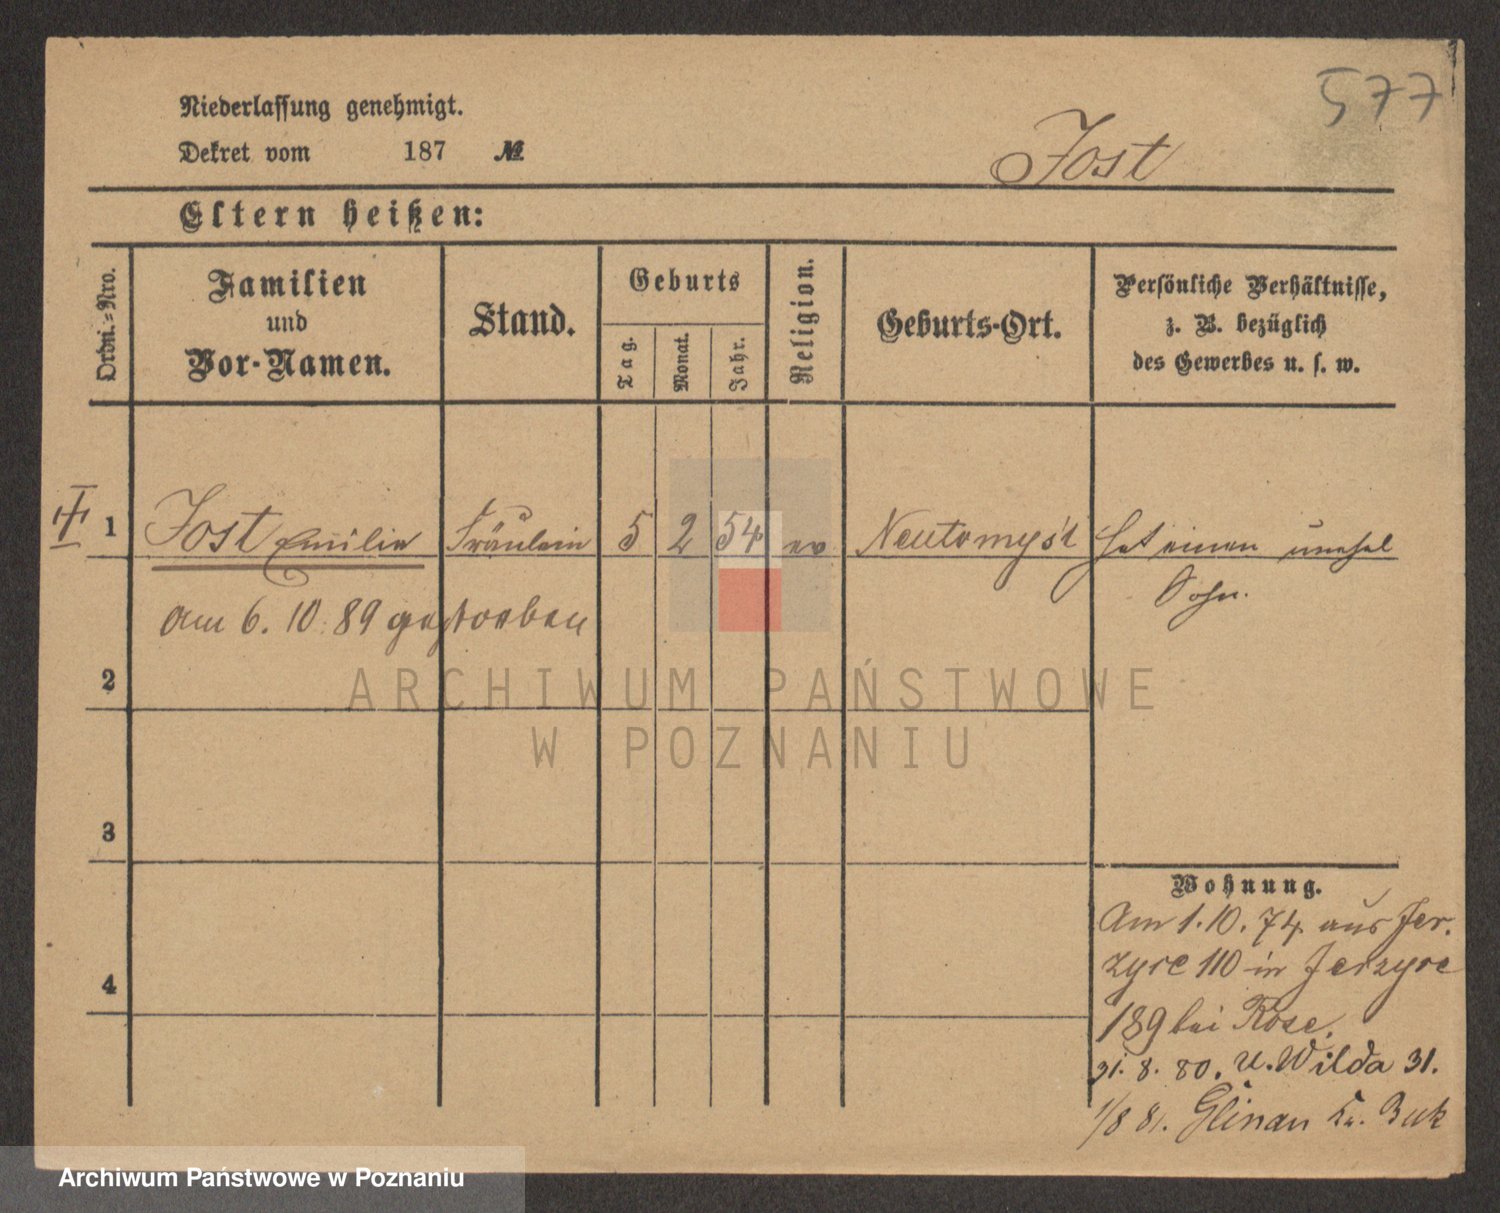 577
Niederlassung genehmigt.
Dekret vom 187 №
Jost
Eltern heißen:
Ordn.-Nro.
Familien
und
Vor-Namen.
Stand.
Geburts
Tag.
Monat.
Jahr.
Religion.
Geburts-Ort.
Persönliche Verhältnisse,
z. B. bezüglich
des Gewerbes u. s. w.
1 Jost Emilie Fräulein 5 2 54 ev Neutomysl hat einen unehel
Sohn.
am 6. 10. 89 gestorben
2
ARCHIWUM PAŃSTWOWE
W POZNANIU
3
Wohnung.
Am 1. 10. 74 aus Jer.
zyce 110 in Jerzyce
189 bei Rose.
31. 8. 80. u. Wilda 31.
1/8 81. Glinau Kr. Buk
4
Archiwum Państwowe w Poznaniu